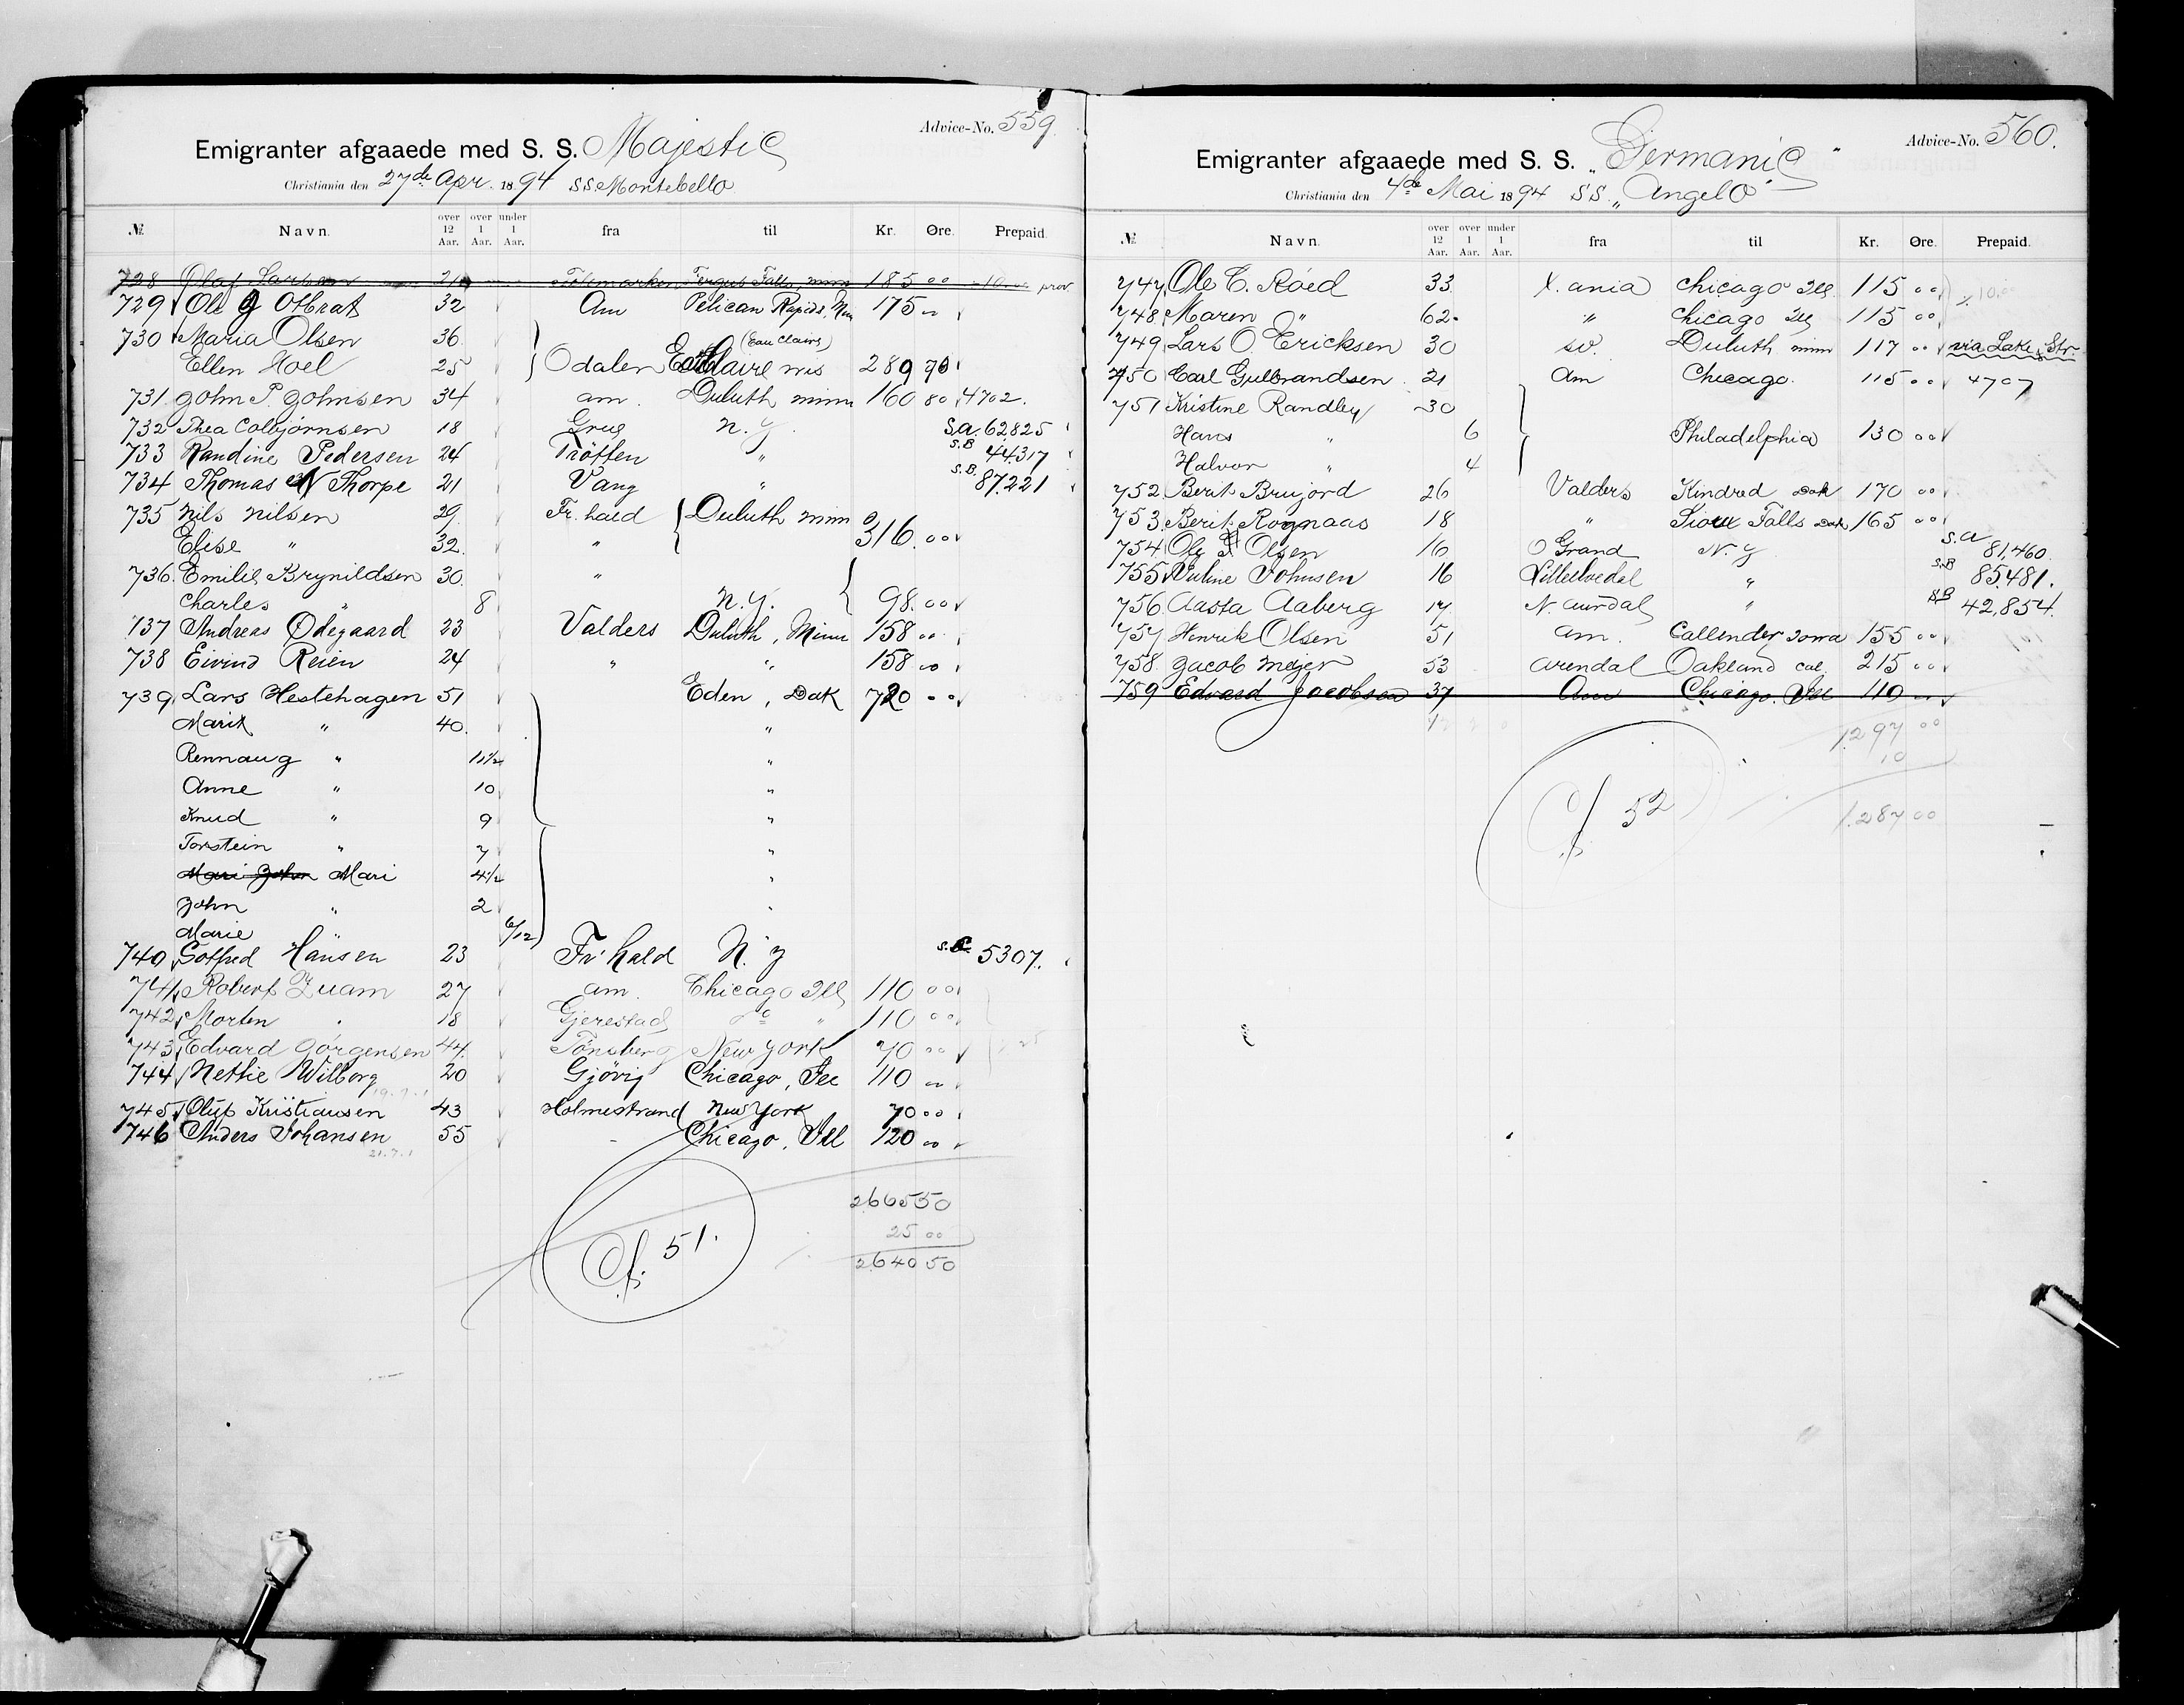 Advice-No. 559.
Emigranter afgaaede med S. S. Majestic
Christiania den 27de Apr. 1894 SS Montebello
№ Navn. over 12 Aar. over 1 Aar. under 1 Aar. fra til Kr. Øre. Prepaid.
728 Olaf Larsen 21 Telemarken Fergus Falls, minn 185 00 10.00 prov
729 Ole Othrat 32 Am Pelican Rapids, 175 00
730 Maria Olsen 36 (Eau Claire)
Ellen Hoel 25 Odalen Claire wis 289 90
731 John P. Johnsen 34 am. Duluth minn 160 80 4702.
732 Thea Colbjørnsen 18 Grue N.Y. S.A. 62825
733 Randine Pedersen 24 Trötten " S.B 44317
734 Thomas N Thorpe 21 Vang " S.B. 87.221
735 Nils Nilsen 29 Fr. hald Duluth minn
Elise " 32 " 316.00
736. Emilie Brynildsen 30. "
Charles " 8 N.Y. 98.00
737 Andreas Ødegaard 23 Valders Duluth, Minn 158 00
738 Eivind Reien 24 " " 158 00
739 Lars Hestehagen 51 Eden, Dak 720 00
Marit " 40. "
Rennaug " 11½ "
Anne " 10 "
Knud " 9 "
Torstein " 7 "
Mari John Mari 4½ "
John " 2 "
Marie " 6/12
740 Gotfred Hansen 23 Fr hald N.Y 5307.
741 Robert Quam 27 am. Chicago Ill 110 00
742 Morten " 18 Gjerestad do " 110 00
743 Edvard Jørgensen 44. Tönsberg New York 70 00
744 Nettie Wilborg 20 Gjövig Chicago, Ill 110 00
745 Oluf Kristiansen 43 Holmestrand New York 70 00
746 Anders Johansen 55 - Chicago, Ill 120 00
21.7.1
2665 50
25 00
2640 50
51.
Advice-No. 560.
Emigranter afgaaede med S. S. „Germanic"
Christiania den 4de Mai 1894 SS. „Angelo"
№ Navn. over 12 Aar. over 1 Aar. under 1 Aar. fra til Kr. Øre. Prepaid.
747 Ole C. Röed 33 X.ania Chicago Ill 115 00
748 Maren " 62. " Chicago Ill 115 00
749 Lars O Ericksen 30 sv. Duluth minn 117 00 via Lake Str.
750 Carl Gulbrandsen 21 Am Chicago. 115 00 4707
751 Kristine Randley 30
Hans " 6 Philadelphia 130 00
Halvor " 4
752 Berit Brujord 26 Valders Kindred Dak 170 00
753 Berit Rognaas 18 " Sioux Falls Dak 165 00
754 Ole Olsen 16 Grand N.Y S.A 81,460.
755 Nuline Johnsen 16 " S.B 85,481.
756 Aasta Aaberg 17 N. Aurdal " S.B 42,854.
757 Henrik Olsen 51 am. Callender Iowa 155 00
758 Jacob Meyer 53 Arendal Oakland Cal. 215 00
759 Edvard Jacobsen 37 Am Chicago. Ill 110 00
1297 00
10
1.287 00
52